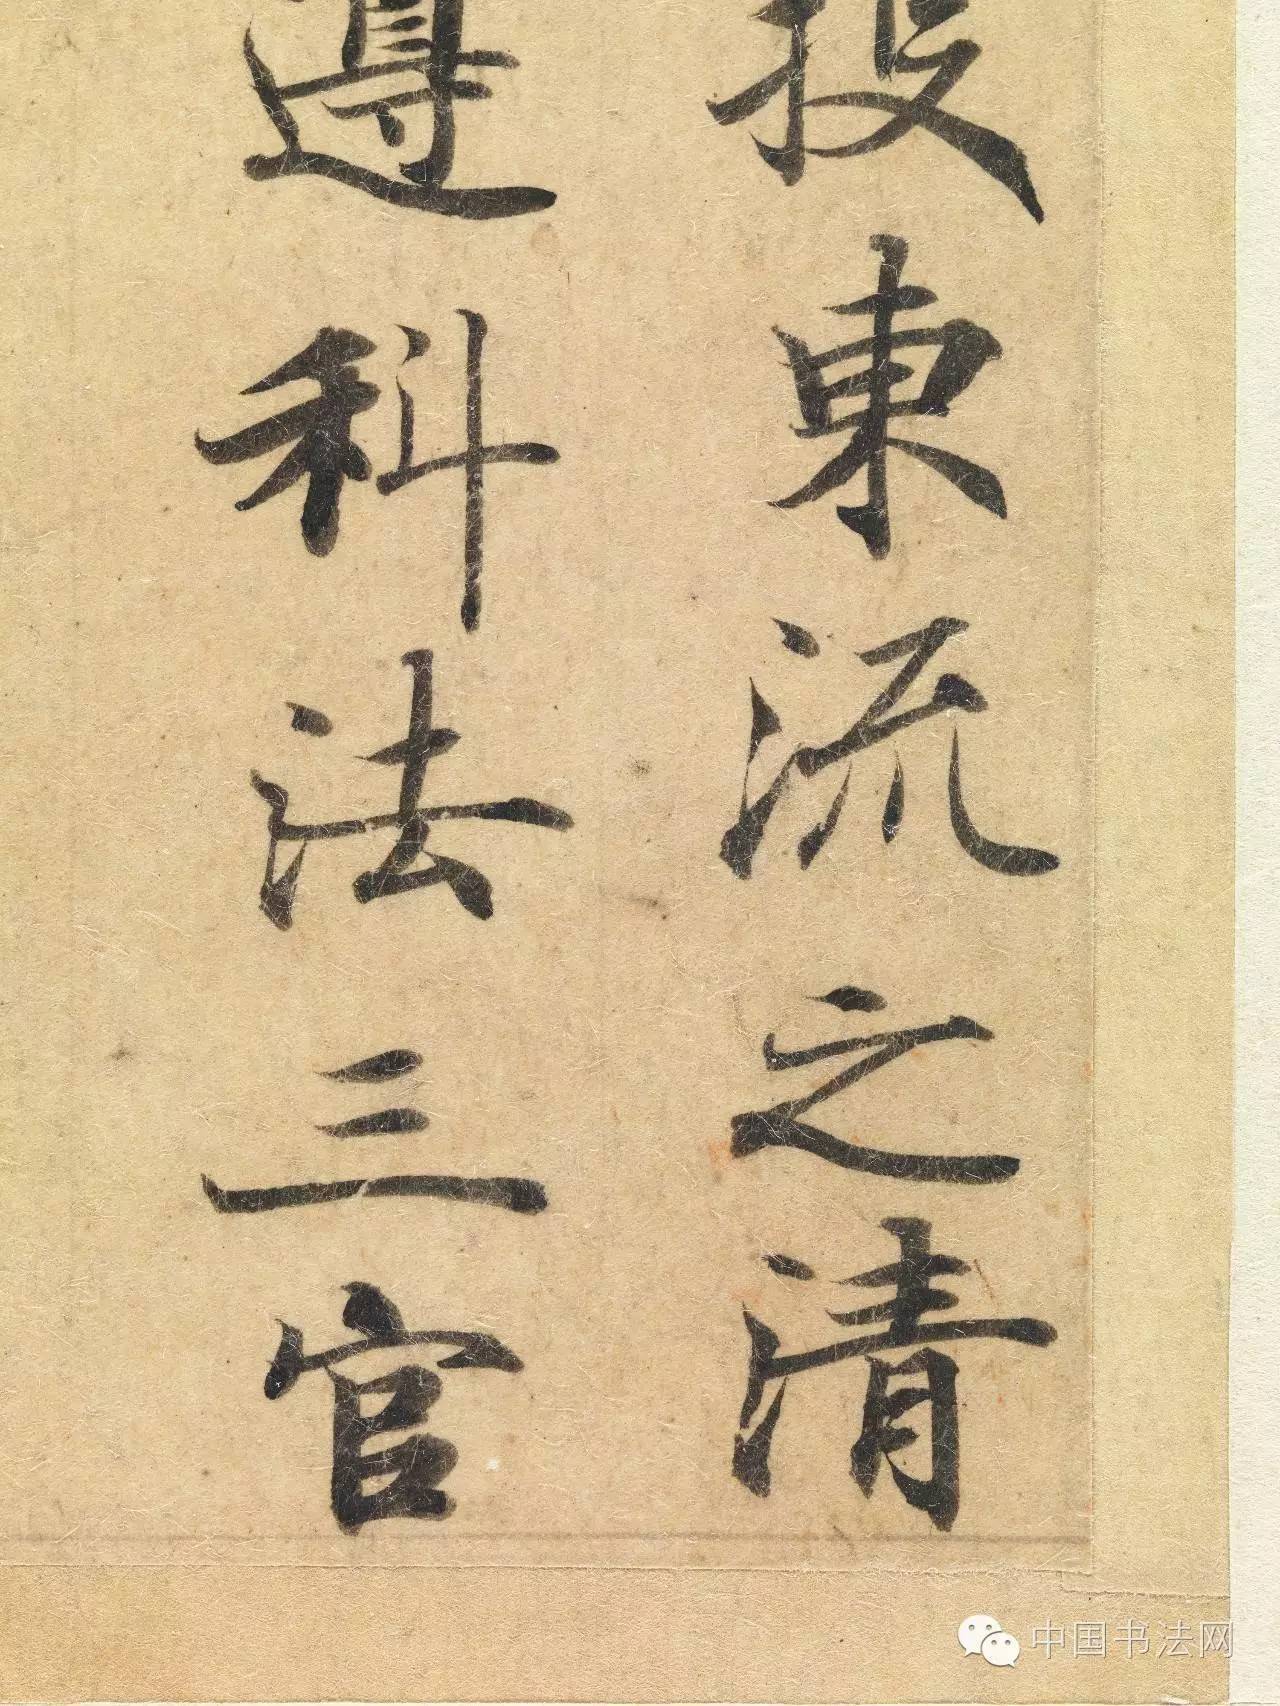 投東流之清
遵科法三官
中国书法网